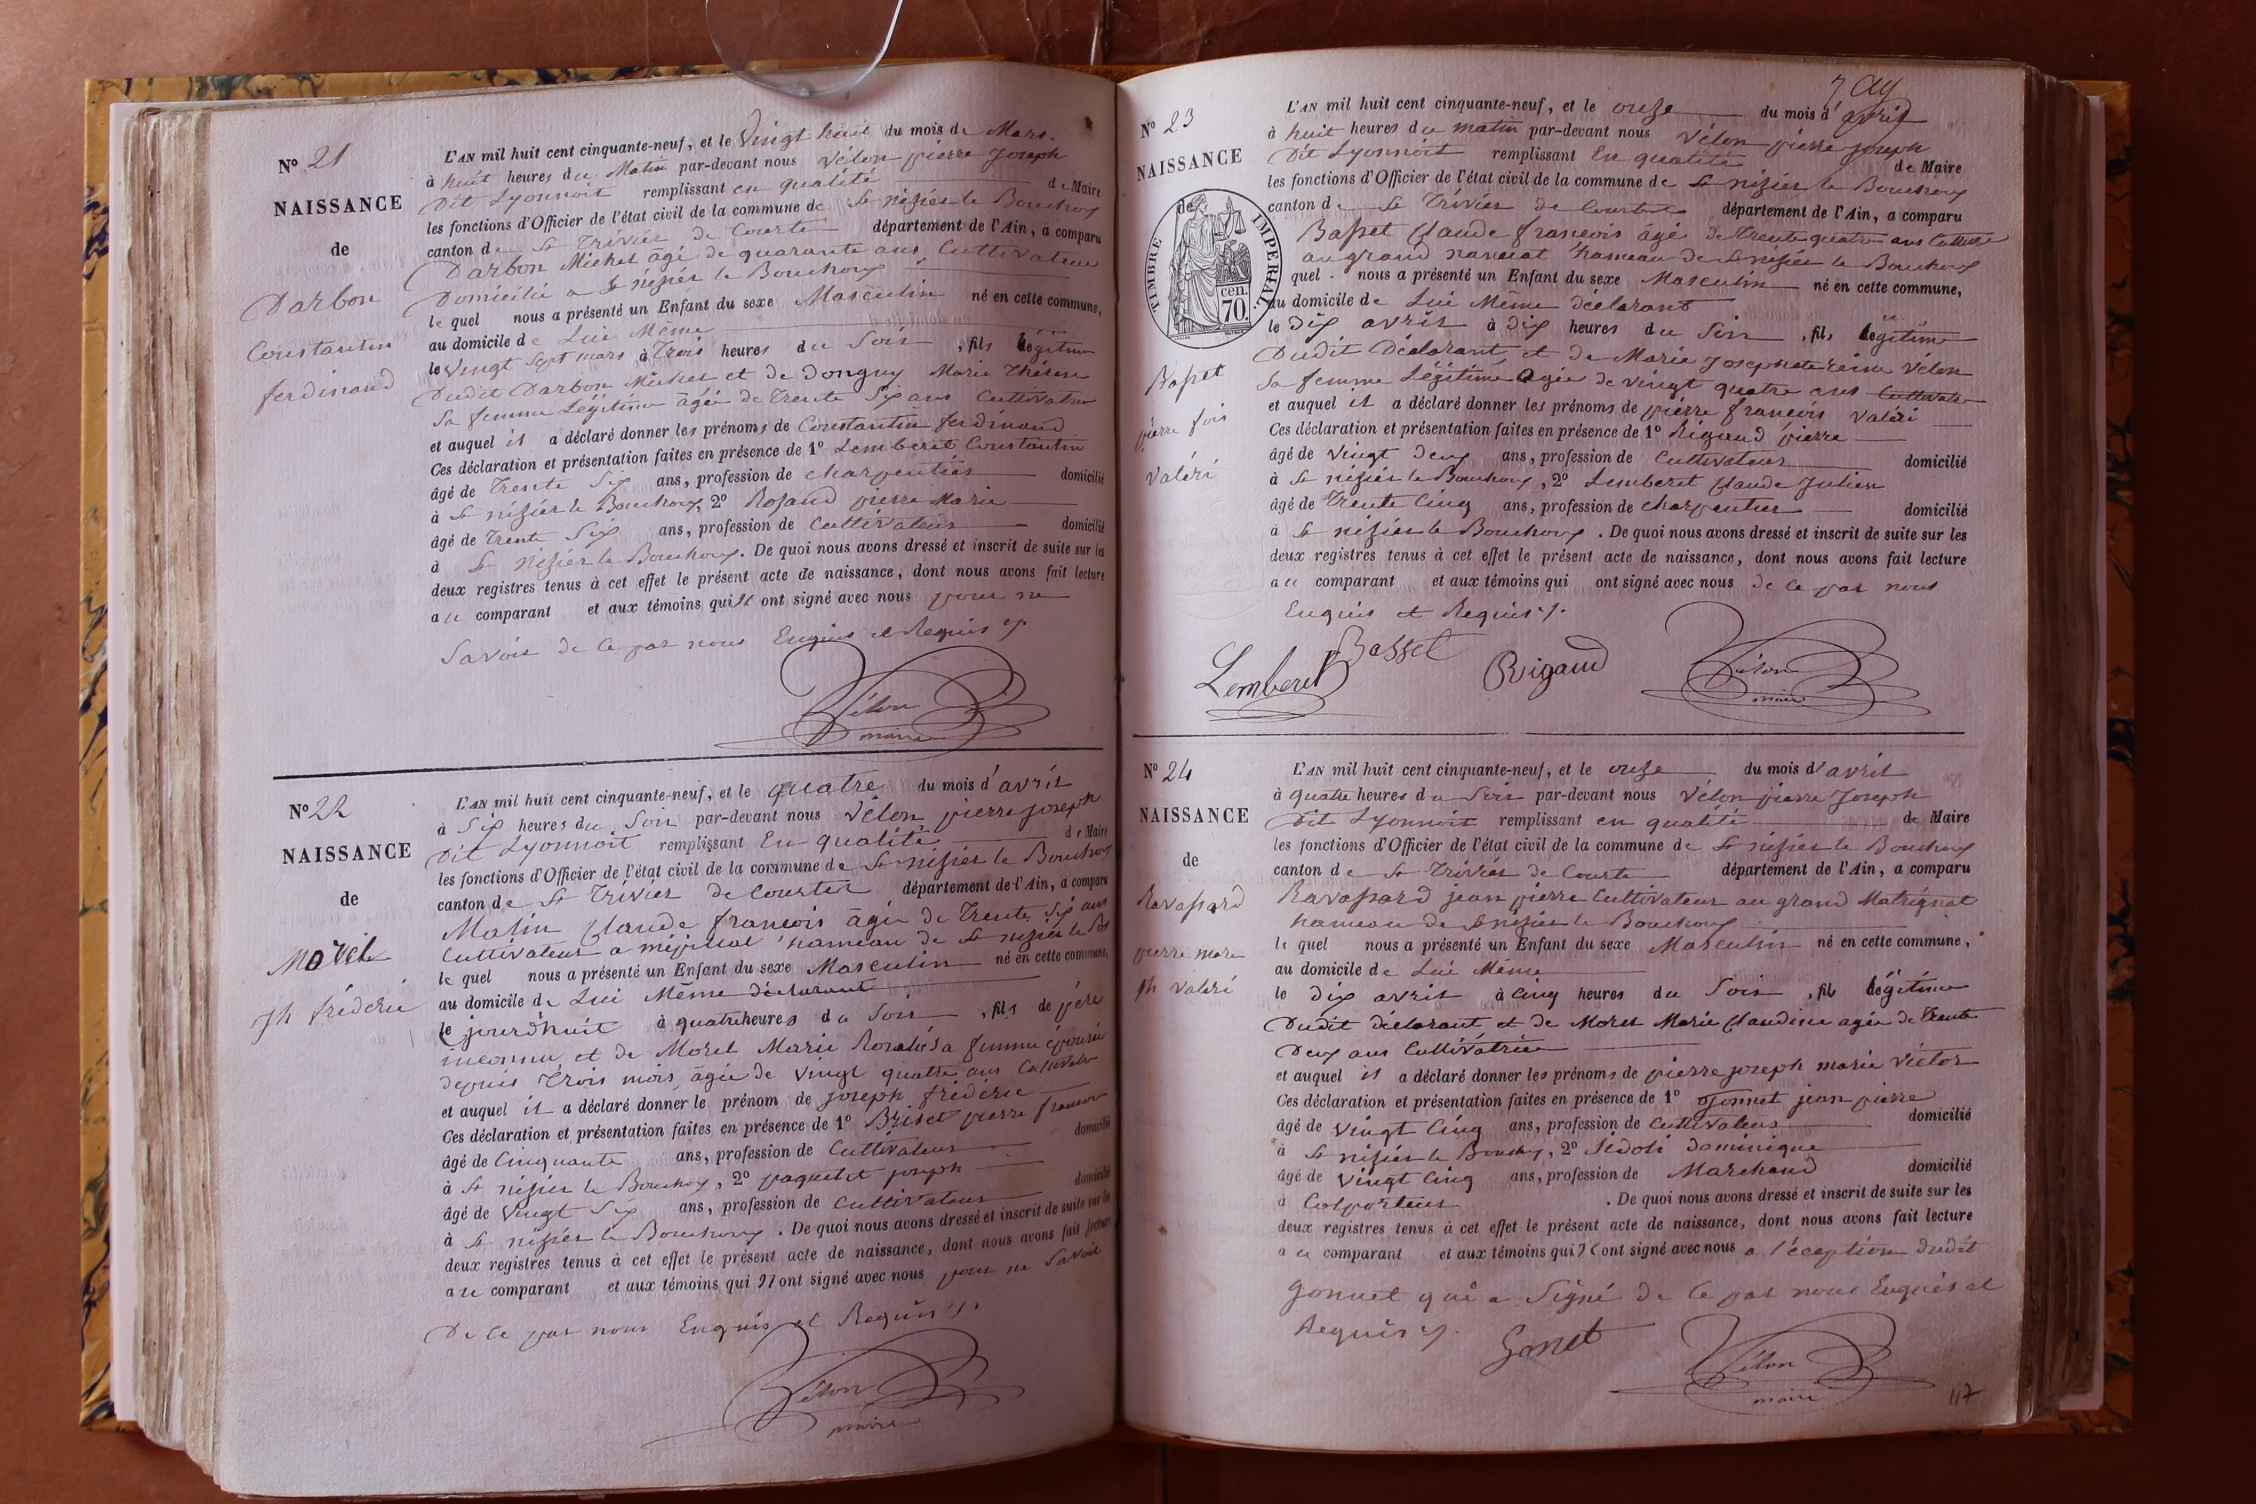 N° 21
NAISSANCE
de
Darbon
Constantin
ferdinand
L'AN mil huit cent cinquante-neuf, et le Vingt huit du mois de Mars
à huit heures du Matin par-devant nous Vélon pierre Joseph
Dit Lyonnoit remplissant en qualité de Maire
les fonctions d'Officier de l'état civil de la commune de St nizier le Bouchoux
canton de St Trivier de Courte département de l'Ain, a comparu
Darbon Michel âgé de quarante ans Cultivateur
Domicilié a St nizier le Bouchoux
lequel nous a présenté un Enfant du sexe Masculin né en cette commune,
au domicile de Lui Même
le Vingt Sept mars à Trois heures du Soir, fils légitime
Dudit Darbon Michel et de Donguy Marie Thérèse
Sa femme Légitime âgée de Trente Six ans
et auquel il a déclaré donner les prénoms de Constantin ferdinand
Ces déclaration et présentation faites en présence de 1° Lemberet Constantin
âgé de Trente Six ans, profession de charpentier domicilié
à St nizier le Bouchoux, 2° pierre Marie
âgé de Trente Six ans, profession de Cultivateur domicilié
à St Nizier le Bouchoux. De quoi nous avons dressé et inscrit de suite sur les
deux registres tenus à cet effet le présent acte de naissance, dont nous avons fait lecture
au comparant et aux témoins qui ont signé avec nous pour ne
Savoir de ce par nous Enquis et Requis
Vélon
maire
N° 22
NAISSANCE
de
Morel
Jh fréderic
L'AN mil huit cent cinquante-neuf, et le quatre du mois d'avril
à Six heures du Soir par-devant nous Vélon pierre joseph
Dit Lyonnoit remplissant En qualité de Maire
les fonctions d'Officier de l'état civil de la commune de St nizier le Bouchoux
canton de St Trivier de Courtes département de l'Ain, a comparu
Claude francois âgé de Trente Six ans
Cultivateur a hameau de St nizier le
lequel nous a présenté un Enfant du sexe Masculin né en cette commune,
au domicile de Lui Même déclarant
le jourd'huit à quatre heures du Soir, fils de père
inconnu et de Morel Marie Sa femme épousée
depuis Trois mois âgée de Vingt quatre ans
et auquel il a déclaré donner le prénom de joseph fréderic
Ces déclaration et présentation faites en présence de 1° pierre francois
âgé de Cinquante ans, profession de Cultivateur domicilié
à St nizier le Bouchoux, 2° paquelet joseph
âgé de Vingt Six ans, profession de Cultivateur domicilié
à St nizier le Bouchoux. De quoi nous avons dressé et inscrit de suite sur les
deux registres tenus à cet effet le présent acte de naissance, dont nous avons fait lecture
au comparant et aux témoins qui ont signé avec nous pour ne Savoir
De ce par nous Enquis et Requis
Vélon
maire
N° 23
NAISSANCE
de
TIMBRE IMPERIAL
70 cen.
Basset
pierre fois
Valéri
L'AN mil huit cent cinquante-neuf, et le onze du mois d'avril
à huit heures du matin par-devant nous Vélon pierre joseph
Dit Lyonnoit remplissant En qualité de Maire
les fonctions d'Officier de l'état civil de la commune de St nizier le Bouchoux
canton de St Trivier de Courtes département de l'Ain, a comparu
Basset Claude francois âgé de trente quatre ans
au grand hameau de St nizier le Bouchoux
quel nous a présenté un Enfant du sexe Masculin né en cette commune,
au domicile de Lui Même déclarant
le dix avril à dix heures du Soir, fils légitime
Dudit Déclarant et de Marie Vélon
Sa femme Légitime agée de vingt quatre ans
et auquel il a déclaré donner les prénoms de pierre francois Valéri
Ces déclaration et présentation faites en présence de 1° Rigaud pierre
âgé de vingt deux ans, profession de Cultivateur domicilié
à St nizier le Bouchoux, 2° Lemberet Claude Julien
âgé de Trente Cinq ans, profession de charpentier domicilié
à St nizier le Bouchoux. De quoi nous avons dressé et inscrit de suite sur les
deux registres tenus à cet effet le présent acte de naissance, dont nous avons fait lecture
au comparant et aux témoins qui ont signé avec nous de ce par nous
Enquis et Requis
Lemberet Basset Rigaud Vélon
maire
N° 24
NAISSANCE
de
Ravassard
pierre marie
jh Valéri
L'AN mil huit cent cinquante-neuf, et le onze du mois d'avril
à quatre heures du Soir par-devant nous Vélon pierre Joseph
Dit Lyonnoit remplissant en qualité de Maire
les fonctions d'Officier de l'état civil de la commune de St nizier le Bouchoux
canton de St Trivier de Courte département de l'Ain, a comparu
Ravassard jean pierre Cultivateur au grand Matrignat
hameau de St nizier le Bouchoux
lequel nous a présenté un Enfant du sexe Masculin né en cette commune,
au domicile de Lui Même
le dix avril à cinq heures du Soir, fils légitime
Dudit déclarant et de Morel Marie Claudine agée de Trente
Deux ans Cultivatrice
et auquel il a déclaré donner les prénoms de pierre joseph marie Victor
Ces déclaration et présentation faites en présence de 1° Gonnet jean pierre
âgé de vingt Cinq ans, profession de Cultivateur domicilié
à St nizier le Bouchoux, 2° Sidoli dominique
âgé de vingt Cinq ans, profession de Marchand domicilié
à Colporteur. De quoi nous avons dressé et inscrit de suite sur les
deux registres tenus à cet effet le présent acte de naissance, dont nous avons fait lecture
au comparant et aux témoins qui ont signé avec nous a l'éception dudit
Gonnet qui a Signé de ce par nous Enquis et
Requis
Gonet Vélon
maire
117